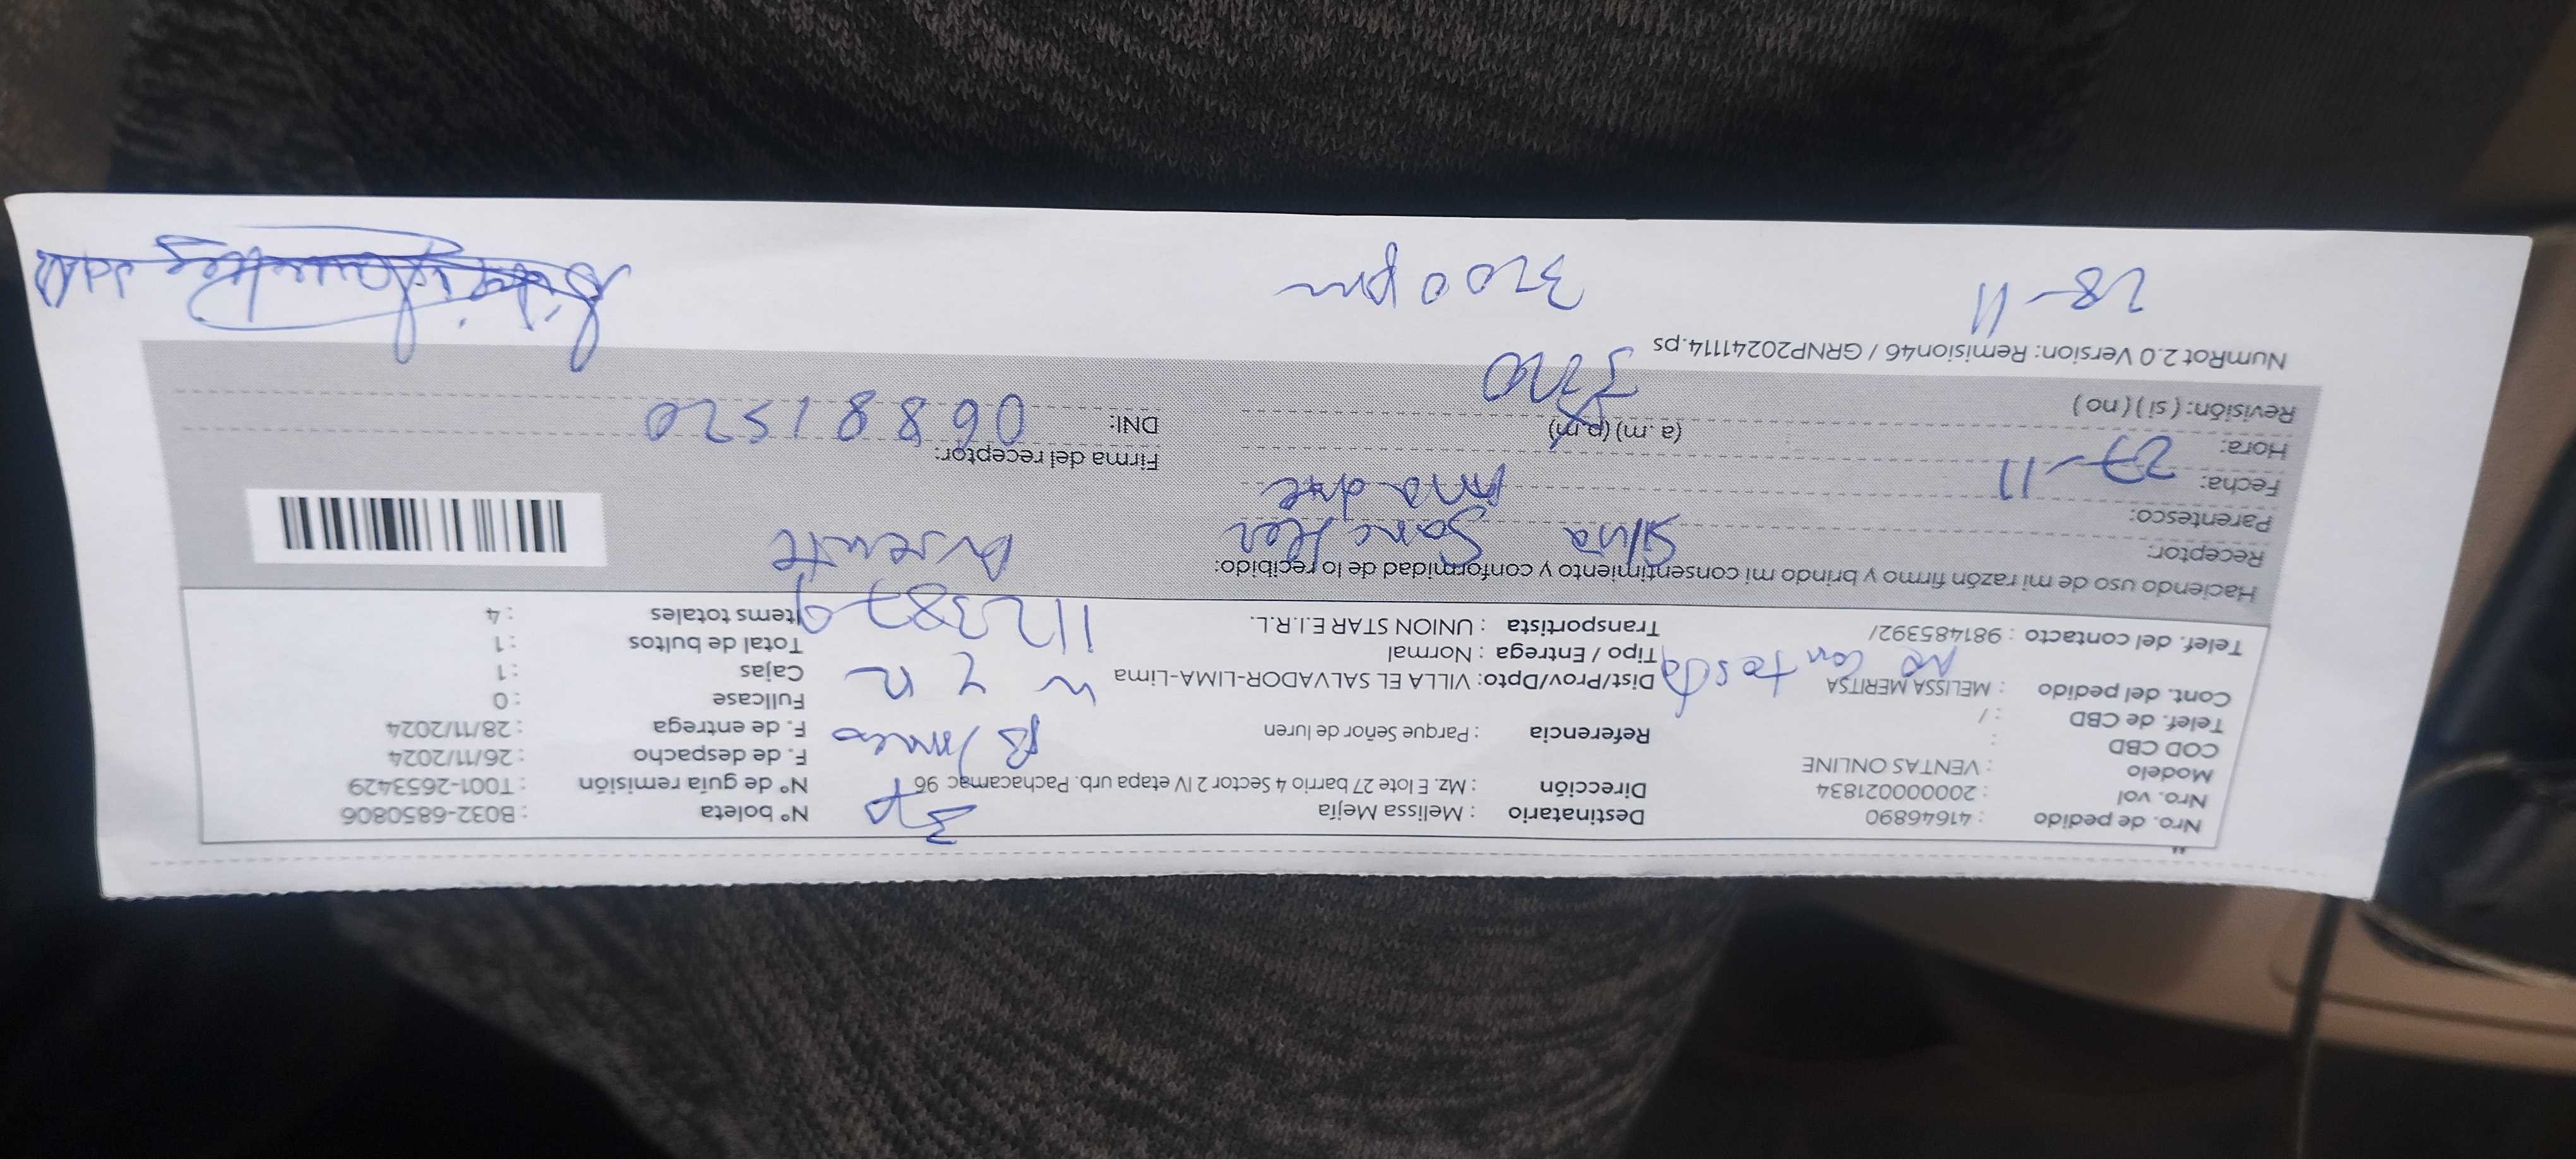 Nro. de pedido : 41646890
Nro. vol : 2000000021834
Modelo : VENTAS ONLINE
COD CBD :
Telef. de CBD : /
Cont. del pedido : MELISSA MERITSA
Telef. del contacto : 981485392/
no contesta
Destinatario : Melissa Mejía
Dirección : Mz. E lote 27 barrio 4 Sector 2 IV etapa urb. Pachacamac 96
Referencia : Parque Señor de luren
Dist/Prov/Dpto: VILLA EL SALVADOR-LIMA-Lima
Tipo / Entrega : Normal
Transportista : UNION STAR E.I.R.L.
3p
B/maco
1123879
Ausente
N° boleta : B032-6850806
N° de guía remisión : T001-2653429
F. de despacho : 26/11/2024
F. de entrega : 28/11/2024
Fullcase : 0
Cajas : 1
Total de bultos : 1
Items totales : 4
Haciendo uso de mi razón firmo y brindo mi consentimiento y conformidad de lo recibido:
Receptor: Silvia Sanchez
Parentesco: madre
Fecha: 27-11
Hora: (a.m) (p.m)
Revisión: ( si ) ( no )
Firma del receptor:
DNI: 06881520
NumRot 2.0 Version: Remision46 / GRNP20241114.ps
28-11
3:00 pm